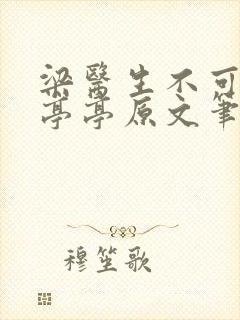 梁醫生不可
亭亭原文筆
穆笙歌